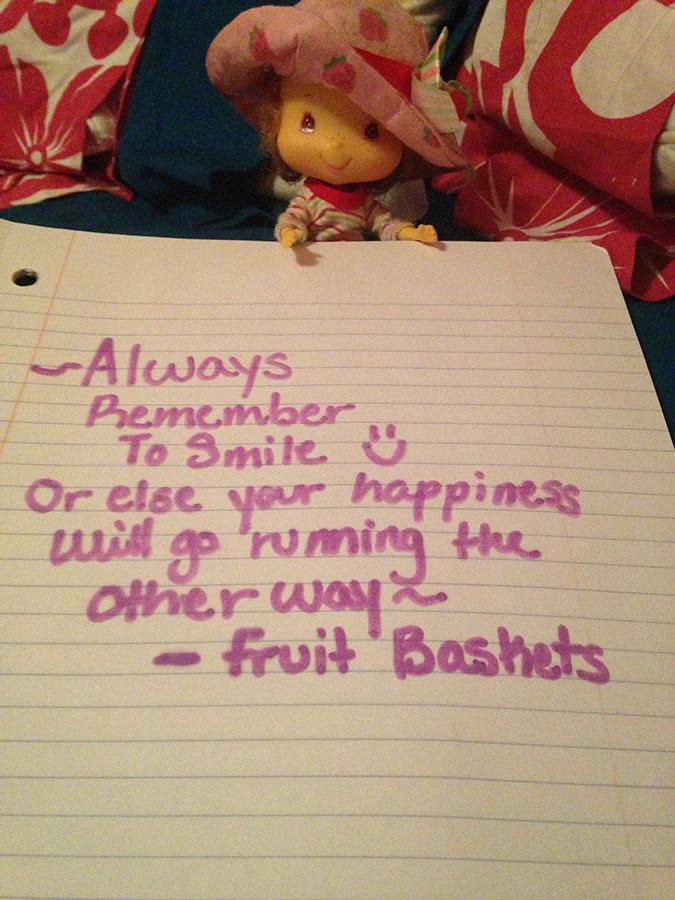 ~Always
Remember
To Smile
Or else your happiness
will go running the
other way~
- fruit Baskets